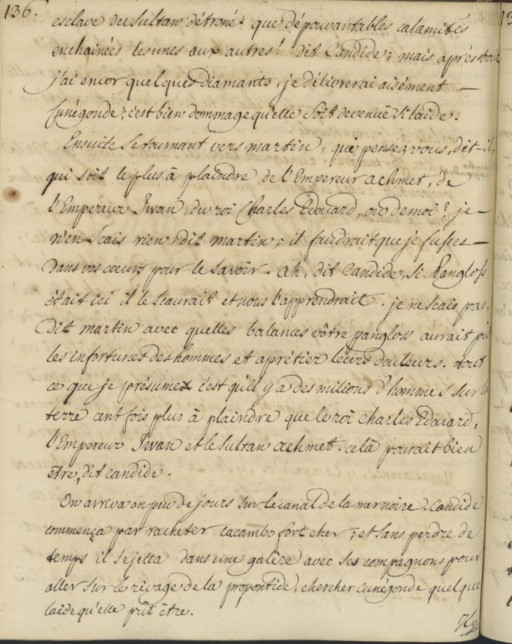 136.
esclave du sultan détroné. que dépouvantables calamités
enchainées les unes aux autres! dit Candide; mais après tout
j'ai encor quelques diamants, je délivrerai aisément
Cunégonde; c'est bien dommage qu'elle soit devenüe si laide.
Ensuite se tournant vers martin, que pensez vous, dit-il,
qui soit le plus à plaindre de l'Empereur achmet, de
l'Empereur Iwan, du roi Charles Edouard, ou de moi? je
n'en scais rien, dit martin; il faudrait que je fusse
dans vos cœurs pour le savoir. ah, dit Candide, si Pangloss
était ici il le scaurait et nous l'apprendrait. je ne scais pas,
dit martin avec quelles balances vôtre pangloss aurait pu
les infortunes des hommes et aprétier leurs douleurs. tout
ce que je présume c'est qu'il y a des millions d'hommes sur la
terre cent fois plus à plaindre que le roi Charles Edouard,
l'Empereur Iwan et le sultan achmet. celà pourait bien
être, dit candide.
On arriva en peu de jours sur le canal de la mer noire. Candide
commença par racheter cacambo fort cher, et sans perdre de
temps il se jetta dans une galère avec ses compagnons pour
aller sur le rivage de la propontide, chercher cunégonde quelque
laide qu'elle pût être.